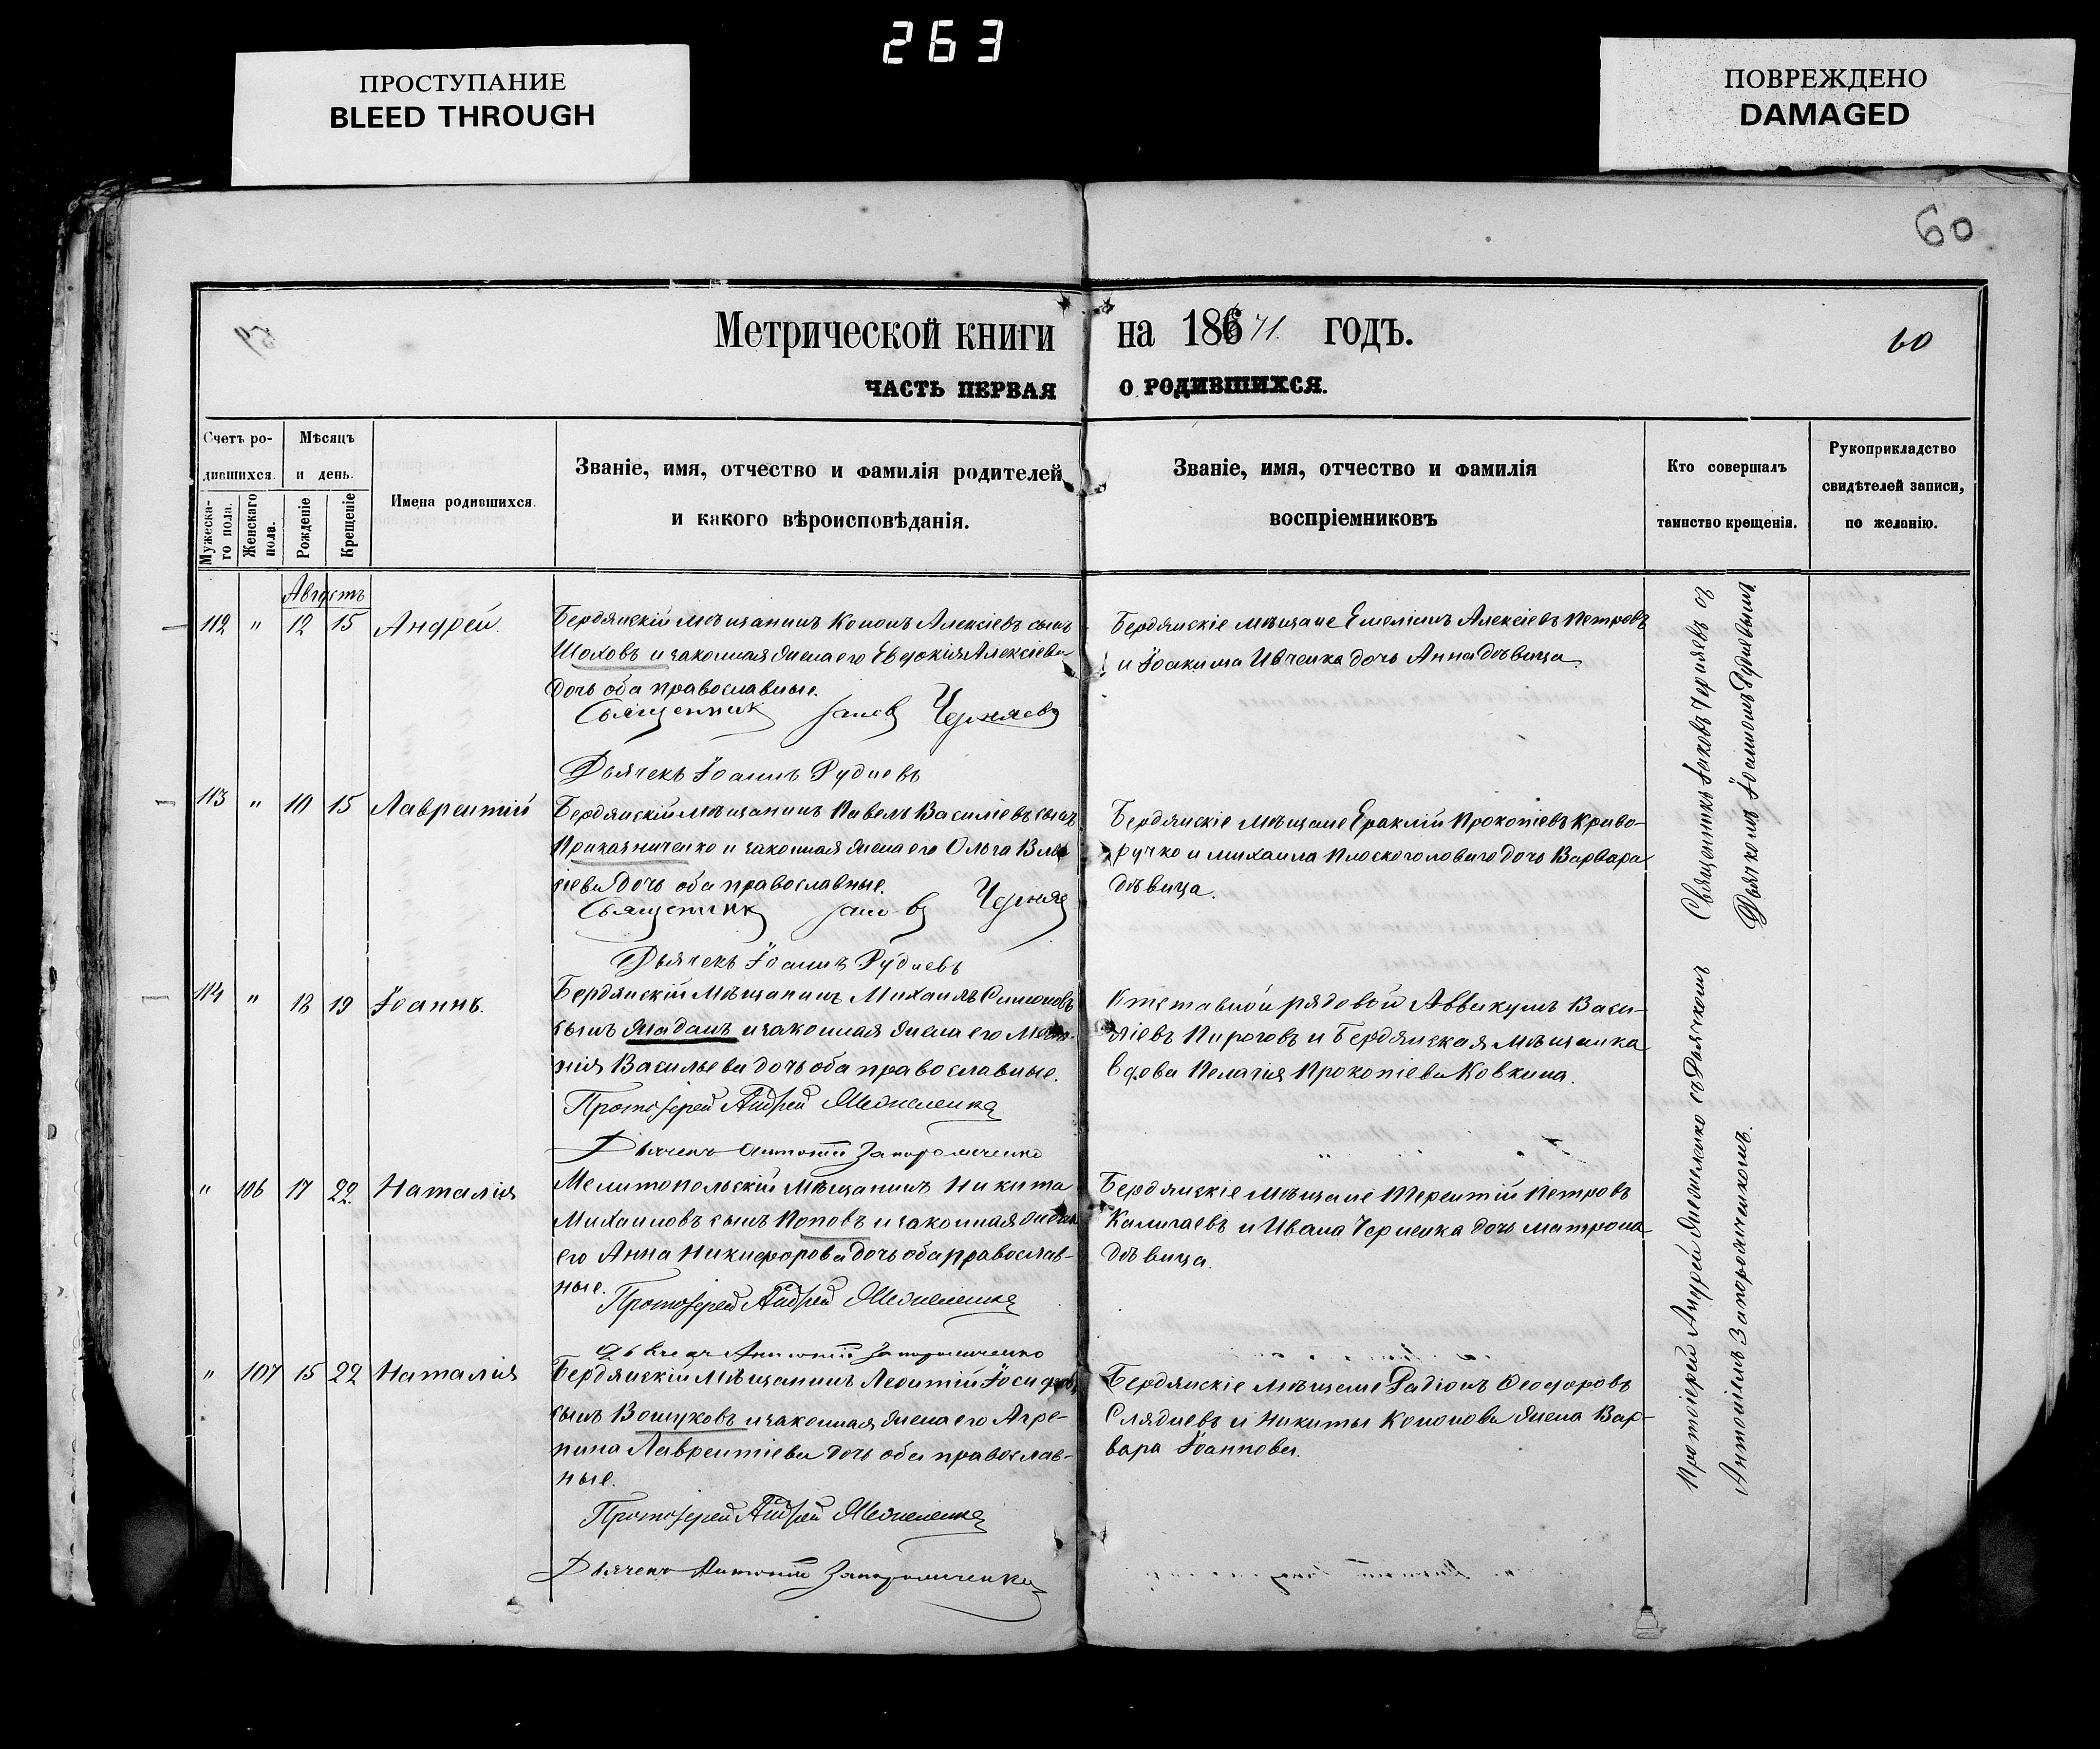 263
ПРОСТУПАНИЕ
BLEED THROUGH
ПОВРЕЖДЕНО
DAMAGED
60
59
Метрической книги на 186 71. годъ.
60
ЧАСТЬ ПЕРВАЯ О РОДИВШИХСЯ.
Счетъ ро-
дившихся.
Мужеска-
го пола.
Женскаго
пола.
Мѣсяцъ
и день.
Рожденіе
Крещеніе
Имена родившихся.
Званіе, имя, отчество и фамилія родителей
и какого вѣроисповѣданія.
Званіе, имя, отчество и фамилія
воспріемниковъ
Кто совершалъ
таинство крещенія.
Рукоприкладство
свидѣтелей записи,
по желанію.
Августъ
112 " 12 15 Андрей.
Бердянскій мѣщанинъ Кононъ Алексіевъ сынъ
Шоховъ и законная жена его Евдокія Алексіева
дочь оба православные.
Священникъ Іаковъ Черняевъ
Дьячекъ Іоаннъ Рудневъ
Бердянскіе мѣщане Емеліанъ Алексіевъ Петровъ
и Іоакима Ивченка дочь Анна дѣвица
113 " 10 15 Лаврентій
Бердянскій мѣщанинъ Павелъ Василіевъ сынъ
Приказниченко и законная жена его Ольга
сіева дочь оба православные.
Священникъ Іаковъ
Дьячекъ Іоаннъ Рудневъ
Бердянскіе мѣщане Ераклій Прокопіевъ Криво-
ручко и Михаила Плоскоголоваго дочь Варвара
дѣвица.
114 " 18 19 Іоаннъ.
Бердянскій мѣщанинъ Михаилъ Симоновъ
сынъ Жаданъ и законная жена его
нія Васильева дочь оба православные.
Протоіерей Андрей Желеленко
Дьячекъ Антоній Запорожченко
рядовой Аввакумъ Васи-
ліевъ Пироговъ и Бердянская мѣщанка
вдова Пелагія Прокопіева Ковкина.
" 106 17 22 Наталія
Мелитопольскій мѣщанинъ Никита
Михаиловъ сынъ Поповъ и законная жена
его Анна Никифорова дочь оба православ-
ные.
Протоіерей Андрей
Дьячекъ Антоній Запорожченко
Бердянскіе мѣщане Терентій Петровъ
Калигаевъ и Ивана Черненка дочь Матрона
дѣвица.
" 107 15 22 Наталія
Бердянскій мѣщанинъ Леонтій Іосифовъ
сынъ Вощуковъ и законная жена его Агре-
пина Лаврентіева дочь оба православ-
ные.
Протоіерей Андрей
Дьячекъ Антоній Запорожченко
Бердянскіе мѣщане Радіонъ Ѳеодоровъ
Слядневъ и Никиты Кононова жена Вар-
вара Іоаннова.
Священникъ Іаковъ Черняевъ съ
Дьячкомъ Іоанномъ Рудневымъ
Протоіерей Андрей съ Дьячкомъ
Антоніемъ Запорожченкомъ.